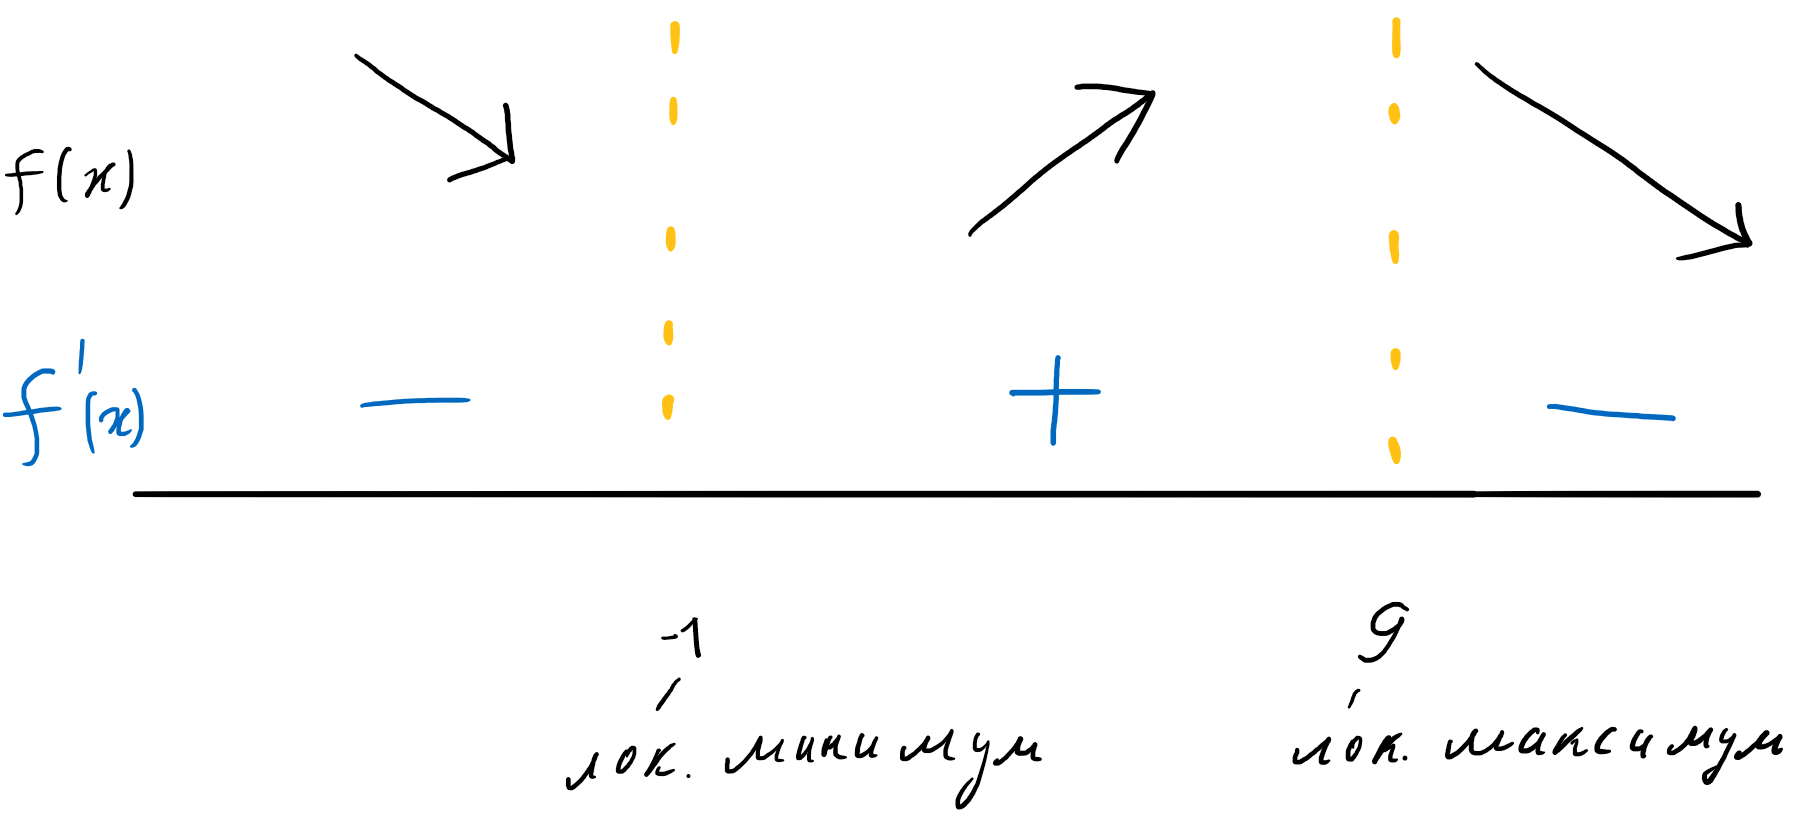 f(x)
f'(x) — + —
-1 9
лок. минимум лок. максимум